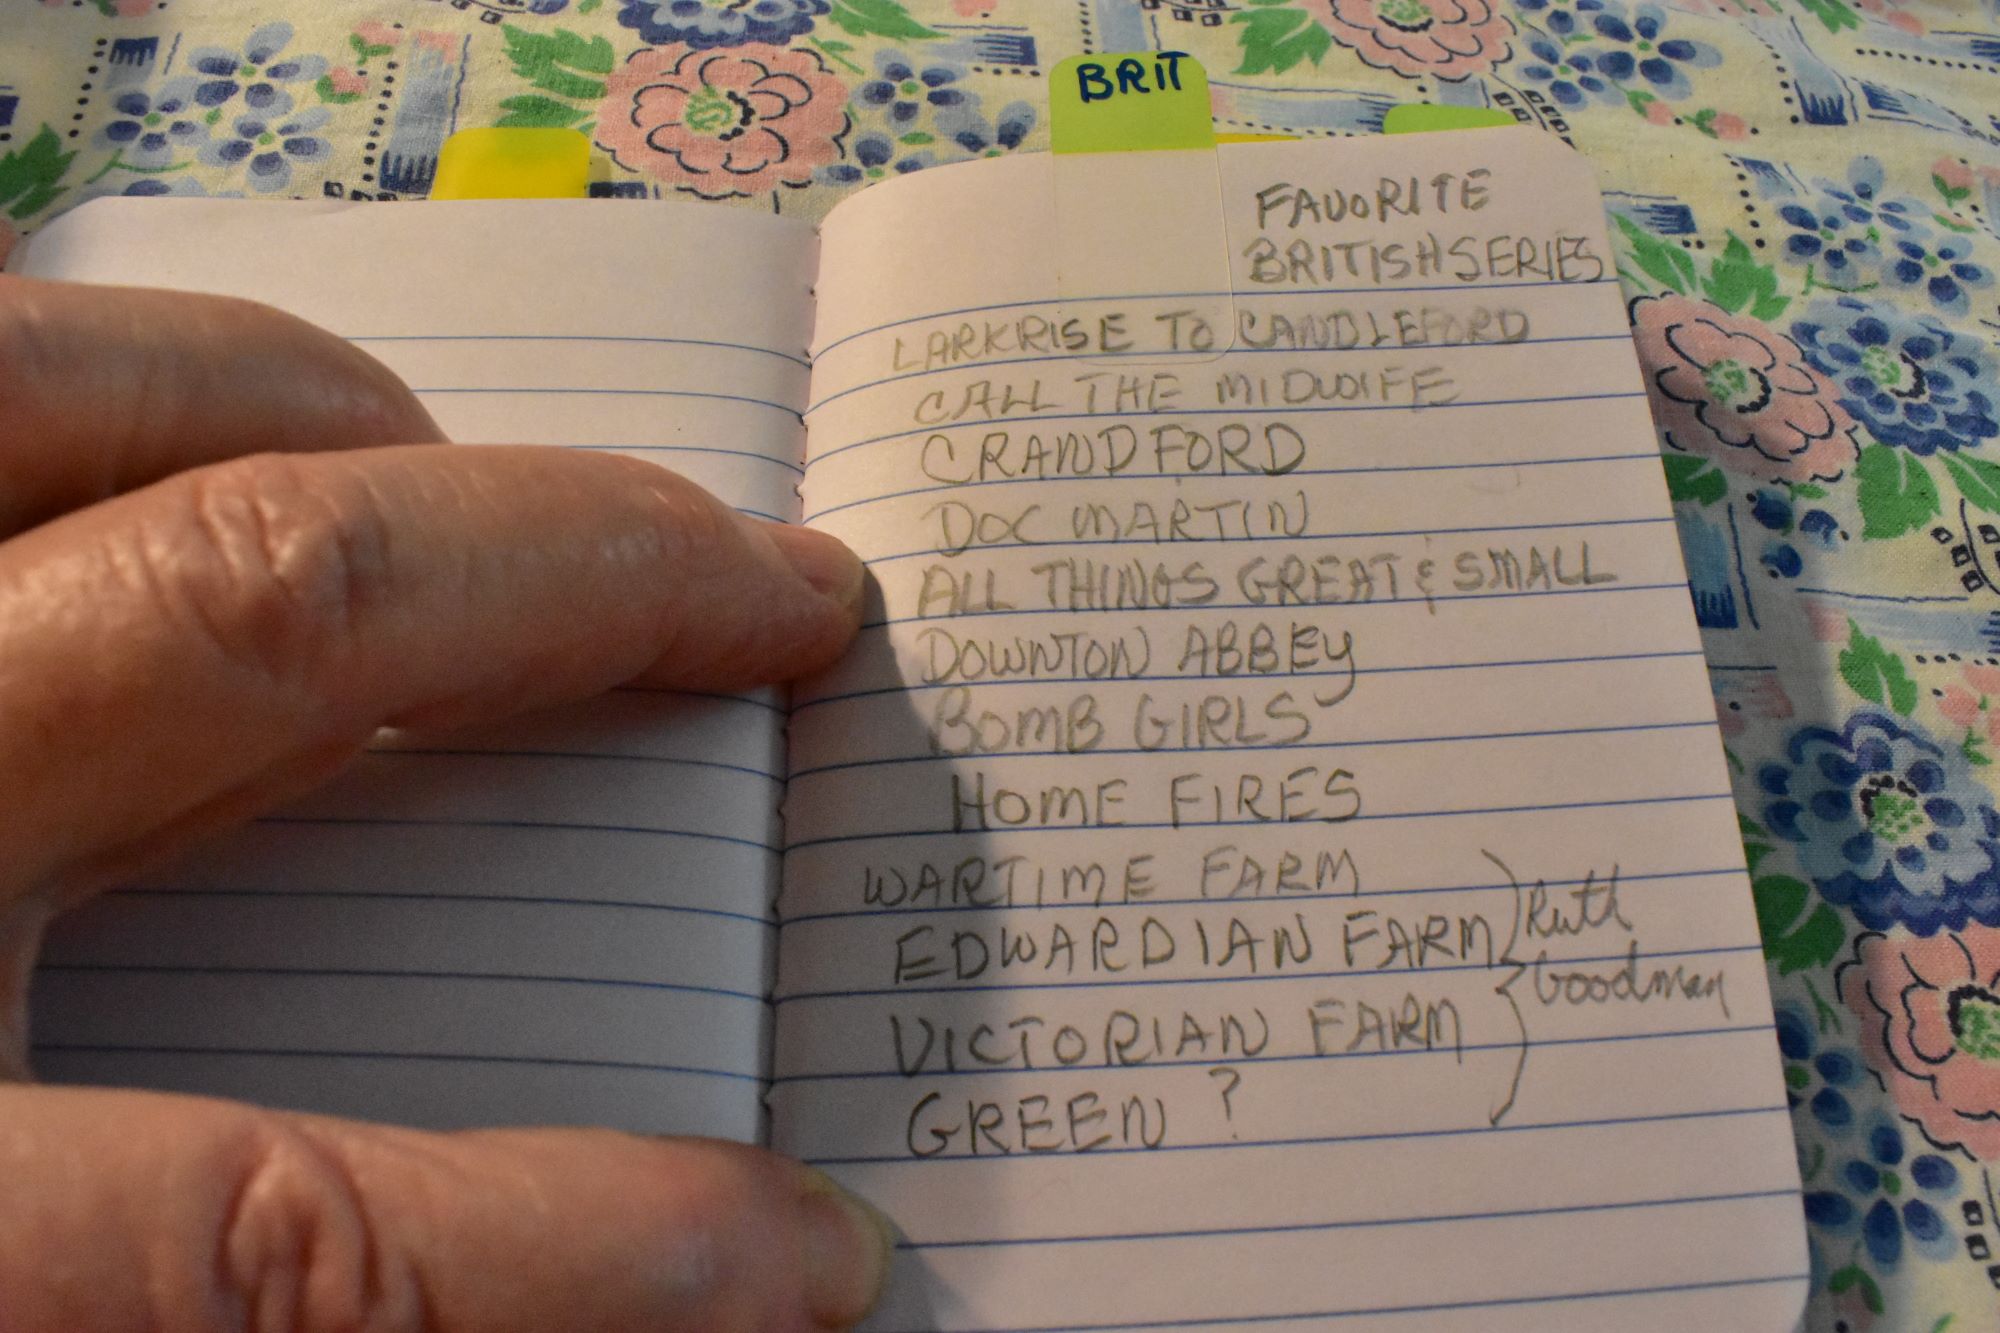 BRIT
FAVORITE
BRITISH SERIES
LARKRISE TO CANDLEFORD
CALL THE MIDWIFE
CRANDFORD
DOC MARTIN
ALL THINGS GREAT & SMALL
DOWNTON ABBEY
BOMB GIRLS
HOME FIRES
WARTIME FARM
EDWARDIAN FARM
VICTORIAN FARM
GREEN ?
Ruth
Goodman